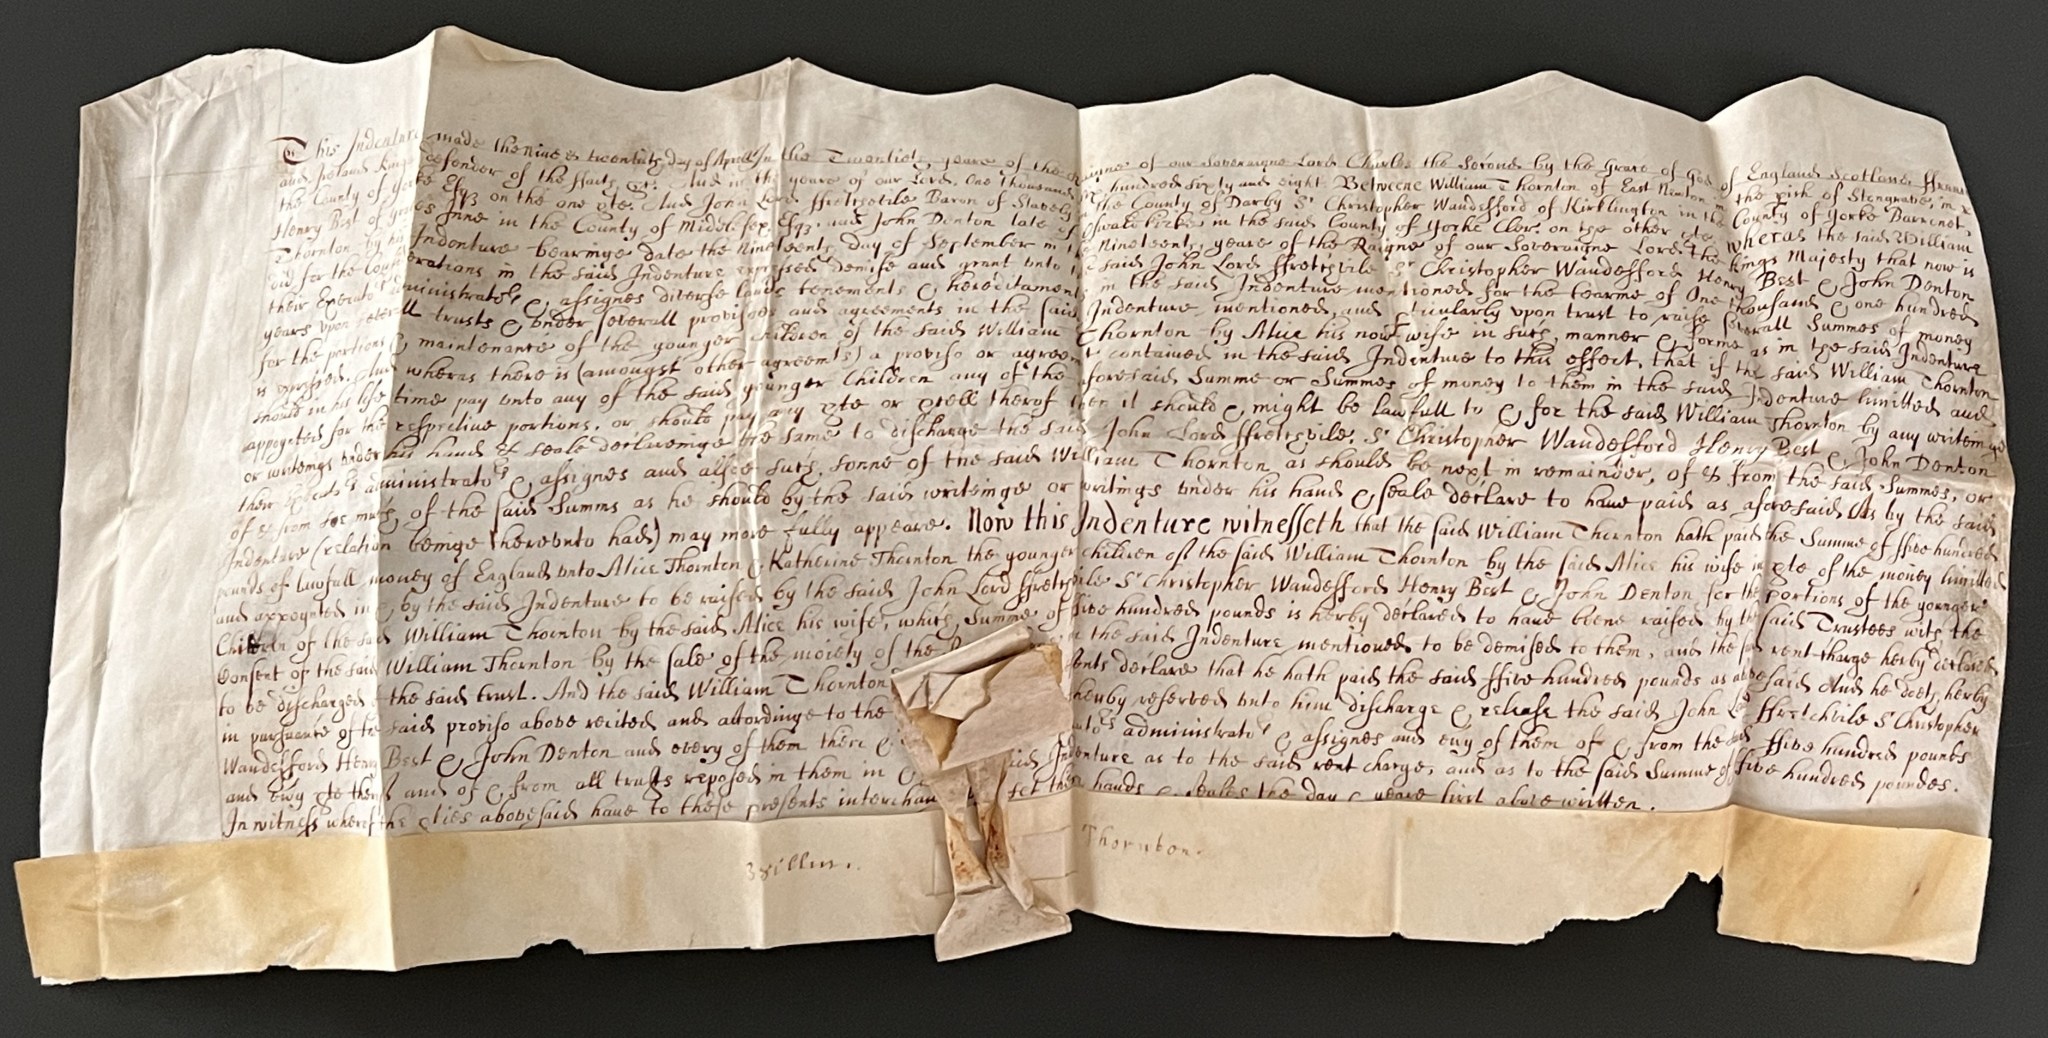 This Indenture made the nine & twentieth day of Aprell In the Twentieth yeare of the Raigne of our Soveraigne Lord Charles the Second by the Grace of god of England Scotland ffrance
and Ireland Kinge Defender of the ffaith &c. And in the yeare of our Lord, One thousand six hundred sixty and eight Betweene William Thornton of East Ninton in the pish of Stongrave, in
the County of Yorke Esqz on the one pte. And John Lord ffretchvile Baron of Stavely in the County of Darby Sr Christopher Wandesford of Kirklington in the County of Yorke Barronet,
Henry Best of Grayes Inne in the County of Middlesex Esqz. and John Denton late of Oswaldkirke in the said County of Yorke Cler. on the other pte. Wheras the said William
Thornton by his Indenture bearinge date the Nineteenth day of September in the Nineteenth yeare of the Raigne of our Soveraigne Lord the Kings Majesty that now is
did for the Considerations in the said Indenture expressed demise and grant unto the said John Lord ffretchvile Sr Christopher Wandesford Henry Best & John Denton
their Executors Administrators & assignes diverse lands tenements & hereditaments in the said Indenture mentioned for the tearme of One thousand & one hundred
years upon severall trusts & under severall provisoes and agreements in the said Indenture mentioned, and pticularly upon trust to raise severall Summes of money
for the portions & maintenance of the younger children of the said William Thornton by Alice his now wife in such manner & forme as in the said Indenture
is expressed. And wheras there is (amongst other agreemts) a proviso or agreemt contained in the said Indenture to this effect, that if the said William Thornton
should in his life time pay unto any of the said younger Children any of the aforesaid Summe or Summes of money to them in the said Indenture limitted and
appoynted for the respective portions, or should pay any pte or pcell therof then it should & might be lawfull to & for the said William Thornton by any writeinge
or writings under his hand & seale declareinge the same to discharge the said John Lord ffretchvile, Sr Christopher Wandesford Henry Best & John Denton
their Executs administratos & assignes and allsoe such sonne of the said William Thornton as should be next in remainder, of & from the said Summes, or
of & from soe much of the said Summs as he should by the said writeinge or writings under his hand & seale declare to have paid as aforesaid As by the said
Indenture (relation beinge therunto had) may more fully appeare. Now this Indenture witnesseth that the said William Thornton hath paid the Summe of ffive hundred
pounds of lawfull money of England unto Alice Thornton & Katherine Thornton the younger children of the said William Thornton by the said Alice his wife in pte of the money limitted
and appoynted in & by the said Indenture to be raised by the said John Lord ffretchvile Sr Christopher Wandesford Henry Best & John Denton for the portions of the younger
Children of the said William Thornton by the said Alice his wife, which Summe of ffive hundred pounds is herby declared to have beene raised by the said Trustees with the
Consent of the said William Thornton by the sale of the moiety of the in the said Indenture mentioned to be demised to them, and the said rent-charge herby declared
to be discharged of the said trust. And the said William Thornton declare that he hath paid the said ffive hundred pounds as abovesaid And he doeth herby
in pursuance of the said proviso above recited and accordinge to the herby reserved unto him discharge & release the said John Lord ffretchvile Sr Christopher
Wandesford Henry Best & John Denton and every of them their administratos & assignes and evy of them of & from the said ffive hundred pounds
and evy pte therof and of & from all trusts reposed in them in said Indenture as to the said rent charge, and as to the said Summe of ffive hundred poundes.
In witness wherof the pties abovesaid have to these presents interchangeably set their hands & seales the day & yeare first above written.
Willm. Thornton.